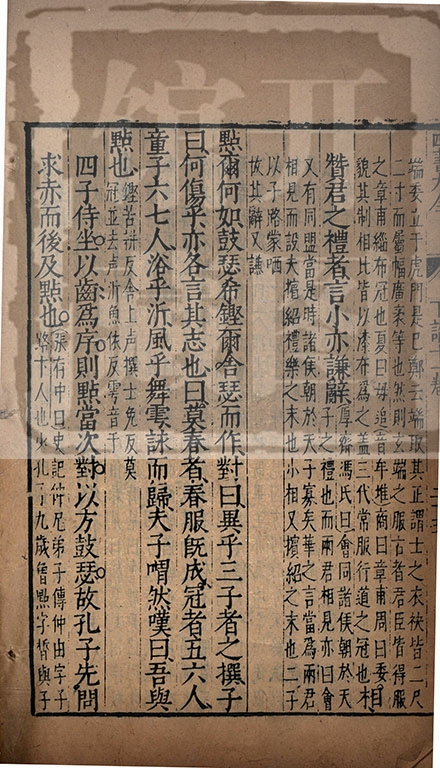 端委立于虎門是已鄭云端取其正謂士之衣袂皆二尺
二寸而屬幅廣袤等也然則玄端之服古者君臣皆得服
之章甫緇布冠也夏曰毋追音牟堆商曰章甫周曰委
貌其制相比皆以漆布為之蓋三代常服行道之冠也
相
贊君之禮者言小亦謙辭
厚齋馮氏曰會同諸侯朝於天
子之禮也而兩君相見亦曰會
又有同盟當是時諸侯朝於天子寡矣華之言當為兩君
相見而設夫擯紹禮樂之末也小相又擯紹之末也二子
以子路蒙哂
故其辭又謙
點爾何如鼓瑟希鏗爾舍瑟而作對曰異乎三子者之撰子
曰何傷乎亦各言其志也曰莫春者春服旣成冠者五六人
童子六七人浴乎沂風乎舞雩詠而歸夫子喟然嘆曰吾與
點也
鏗苦耕反舍上声撰士免反莫
冠並去声沂魚依反雩音于
四子侍坐以齒爲序則點當次對以方鼓瑟故孔子先問
求赤而後及點也
張有中曰史記仲尼弟子傳仲由字子
路卞人也少孔子九歲曾點字晳與子